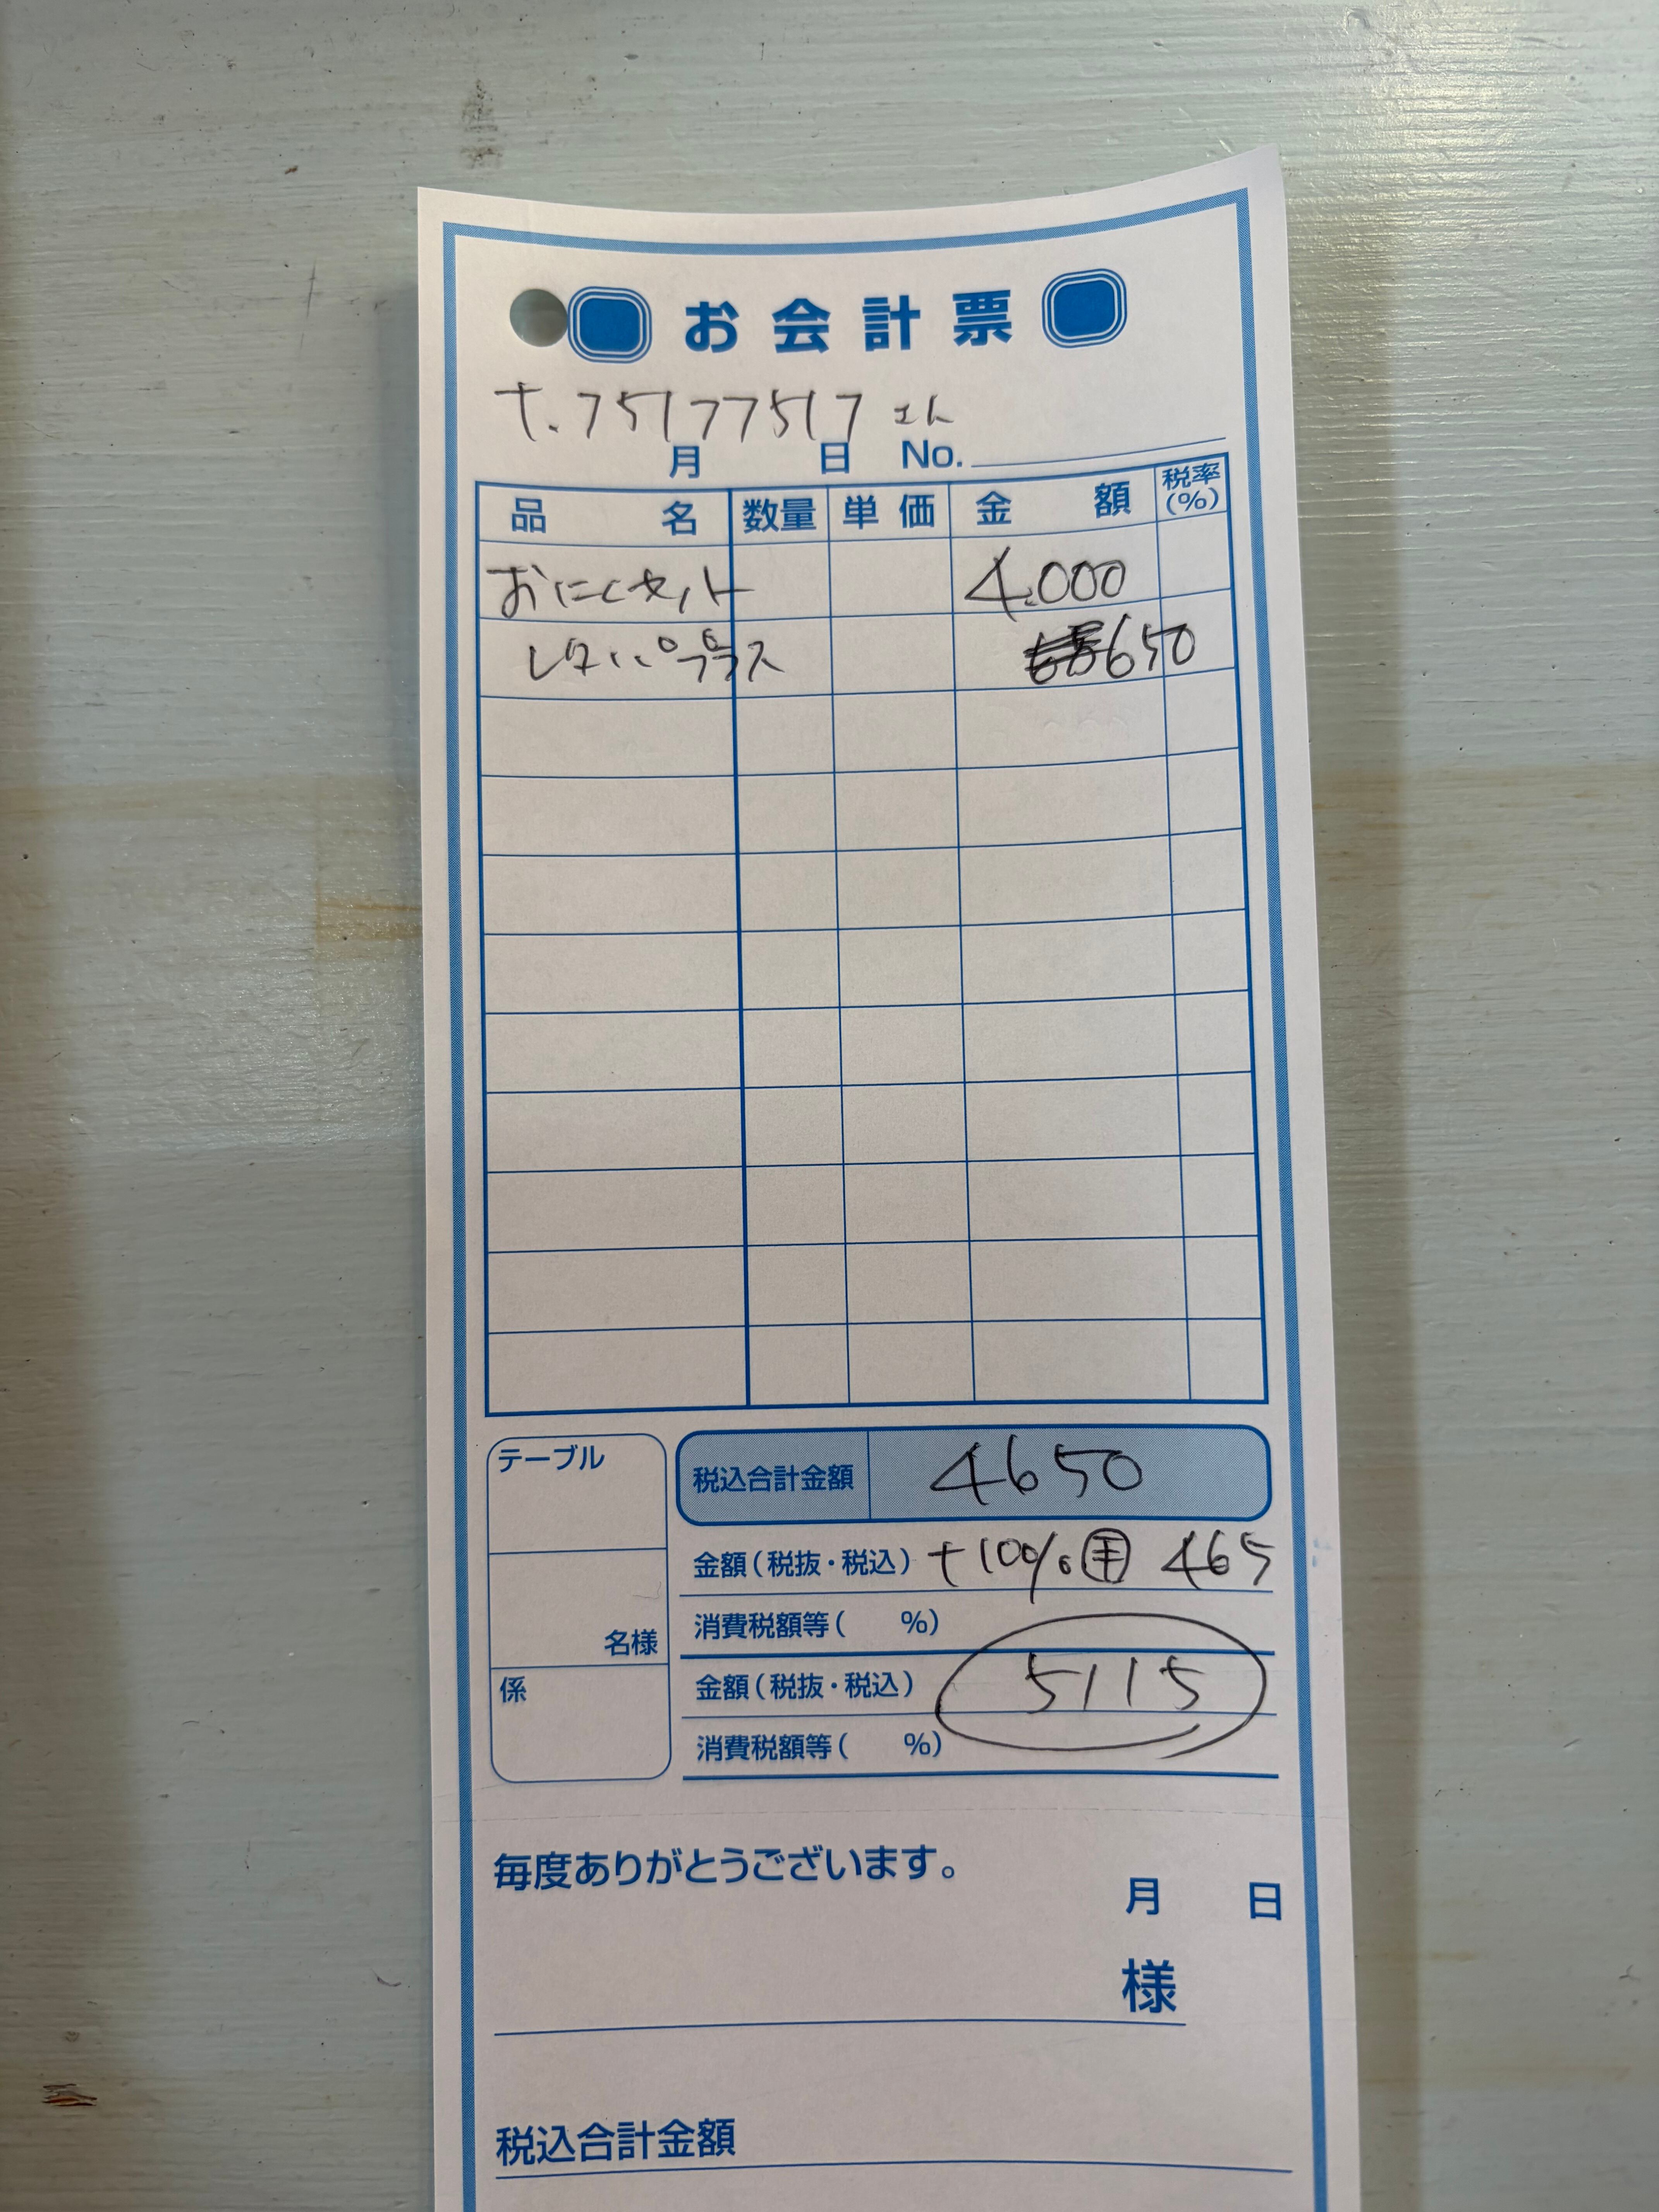 お会計票
t.75177517 さん
月 日 No.
品名 数量 単価 金額 税率(%)
おにくセット 4.000
レタパプラス 650
テーブル
税込合計金額 4650
金額(税抜・税込) +10%㊉ 465
名様
消費税額等( %)
係
金額(税抜・税込) 5115
消費税額等( %)
毎度ありがとうございます。
月 日
様
税込合計金額